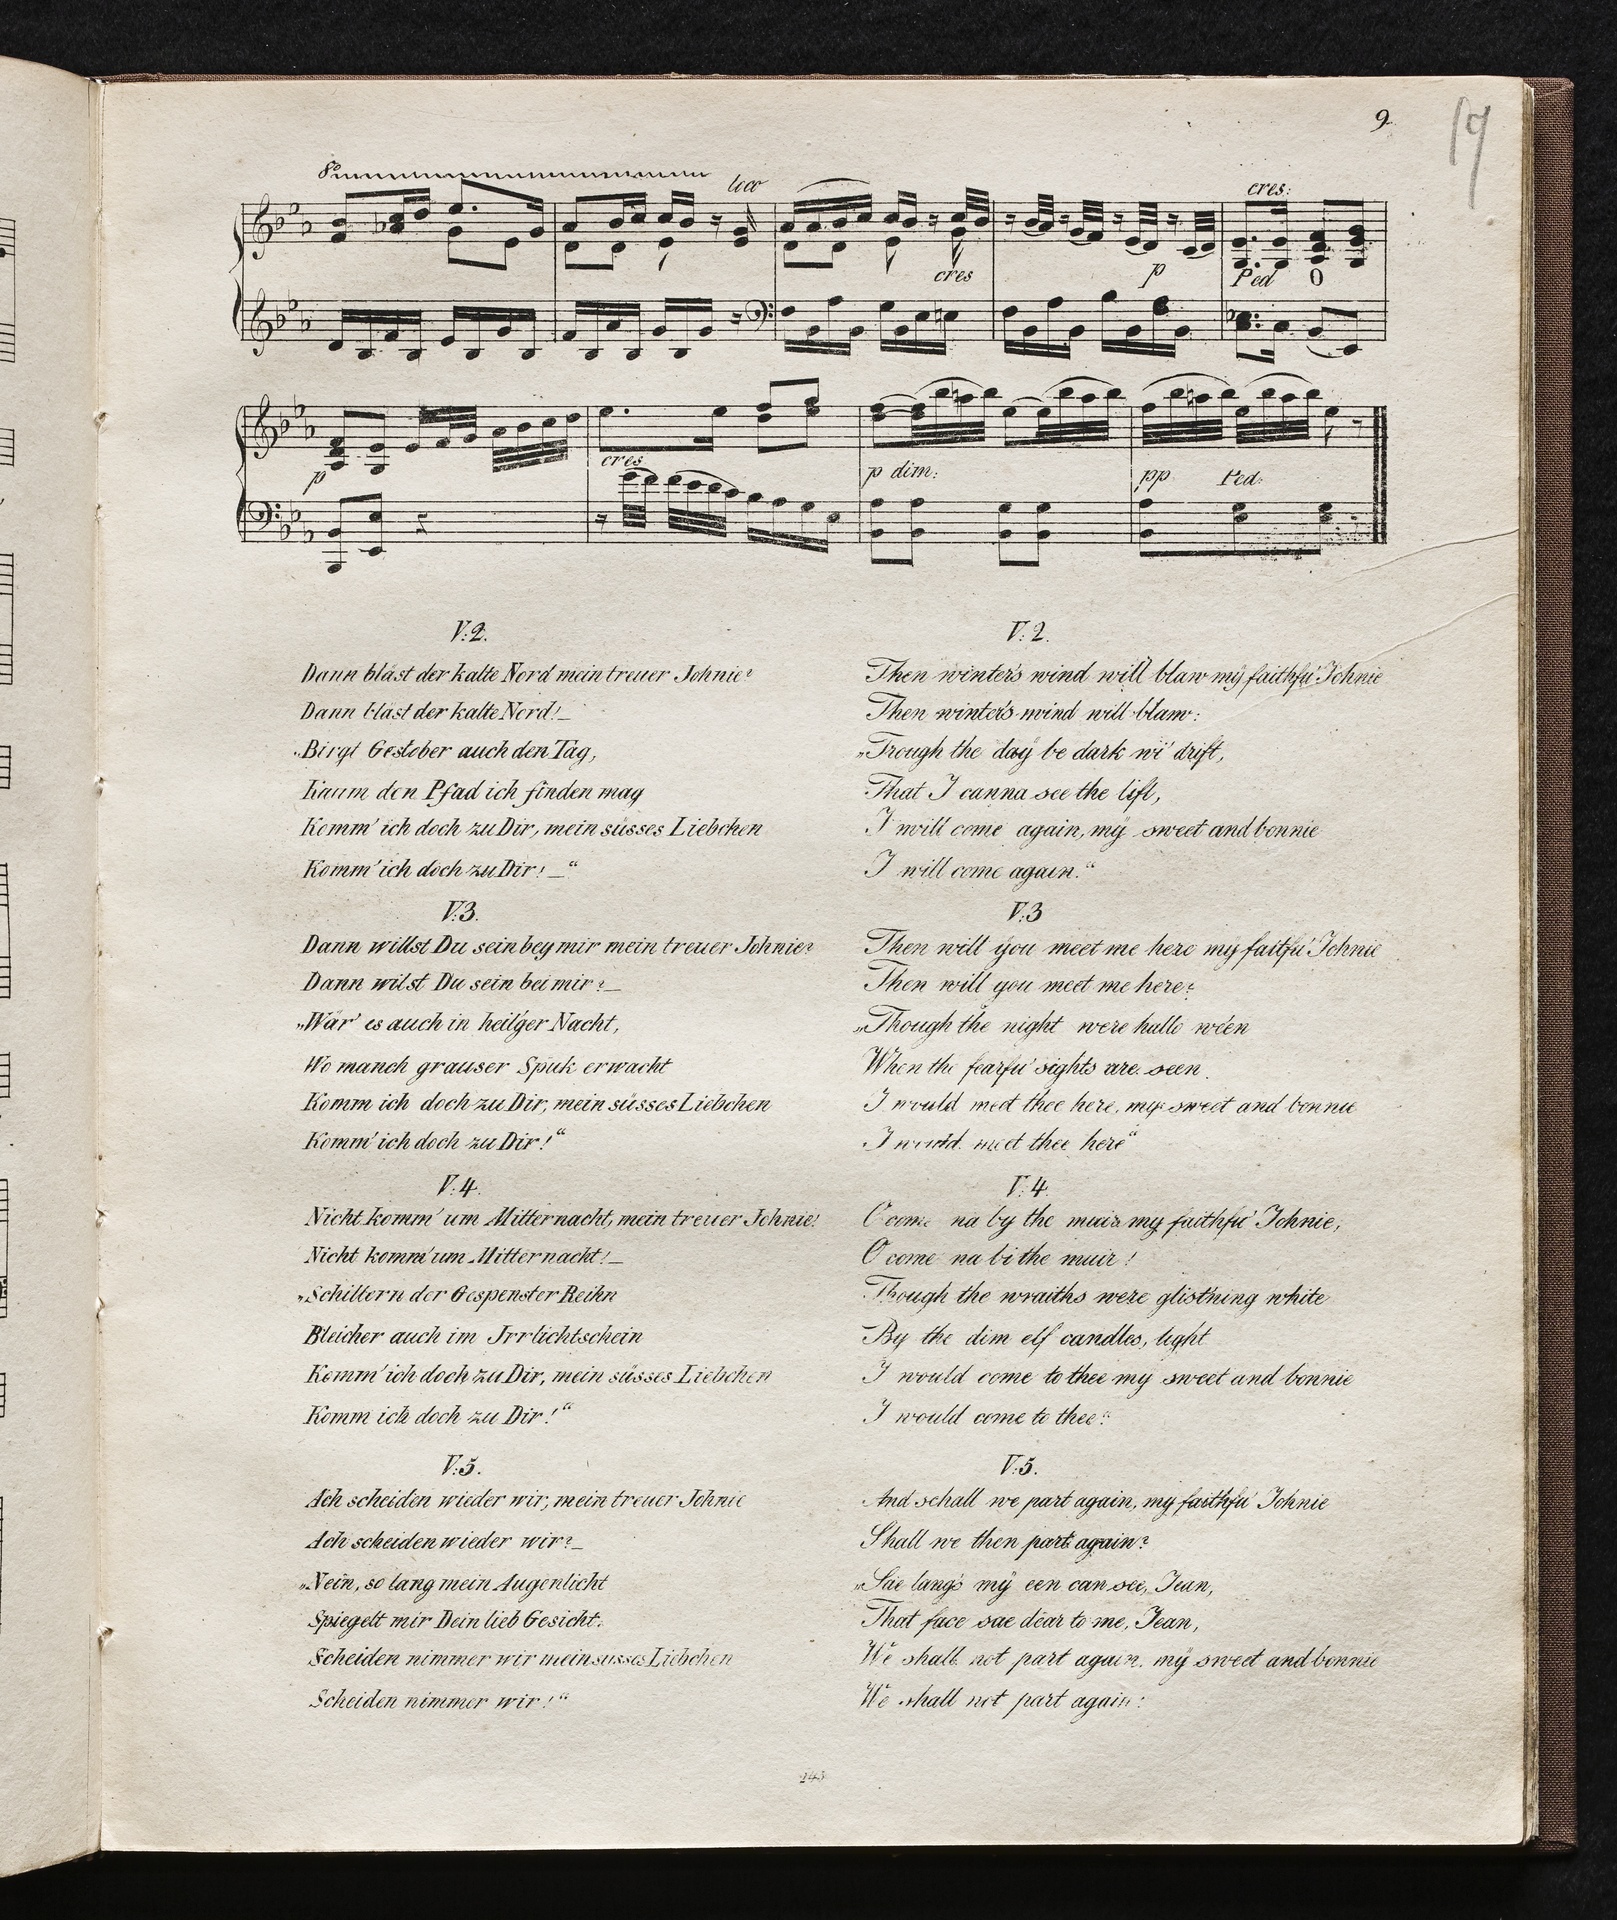 9
19
8va
loco
cres:
cres
p
Ped
O
p
cres
p dim:
pp
Ped:
V: 2.
Dann bläst der kalte Nord mein treuer Johnie?
Dann bläst der kalte Nord!_
„Birgt Gestöber auch den Tag,
Kaum den Pfad ich finden mag
Komm' ich doch zu Dir, mein süsses Liebchen
Komm' ich doch zu Dir! _“
V: 3.
Dann willst Du sein bey mir mein treuer Johnie?
Dann wilst Du sein bei mir?_
„Wär' es auch in heil'ger Nacht,
Wo manch grauser Spuk erwacht
Komm ich doch zu Dir, mein süsses Liebchen
Komm' ich doch zu Dir!“
V: 4.
Nicht komm' um Mitternacht, mein treuer Johnie!
Nicht komm' um Mitternacht!_
„Schillern der Gespenster Reihn
Bleicher auch im Irrlichtschein
Komm' ich doch zu Dir, mein süsses Liebchen
Komm ich doch zu Dir!“
V: 5.
Ach scheiden wieder wir, mein treuer Johnie
Ach scheiden wieder wir?_
„Nein, so lang mein Augenlicht
Spiegelt mir Dein lieb Gesicht.
Scheiden nimmer wir mein susses Liebchen
Scheiden nimmer wir!“
V: 2.
Then winter's wind will blaw my faithfu' Johnie
Then winter's wind will blaw:
„Trough the day be dark wi' drift,
That I canna see the lift,
I will come again, my sweet and bonnie
I will come again.“
V: 3
Then will you meet me here my faitfu' Johnie
Then will you meet me here?
„Though the night were hallo we'en
When the fearfu' sights are seen.
I would meet thee here, my sweet and bonnie
I would meet thee here“
V: 4.
O come na by the muir my faithfu' Johnie,
O come na bi the muir!
Though the wraiths were glist'ning white
By the dim elf candles, light
I would come to thee my sweet and bonnie
I would come to thee“
V: 5.
And schall we part again, my faithfu' Johnie
Shall we then part again?
„Sae lang's my een can see, Jean,
That face sae dear to me, Jean,
We shall not part again. my sweet and bonnie
We shall not part again:
243